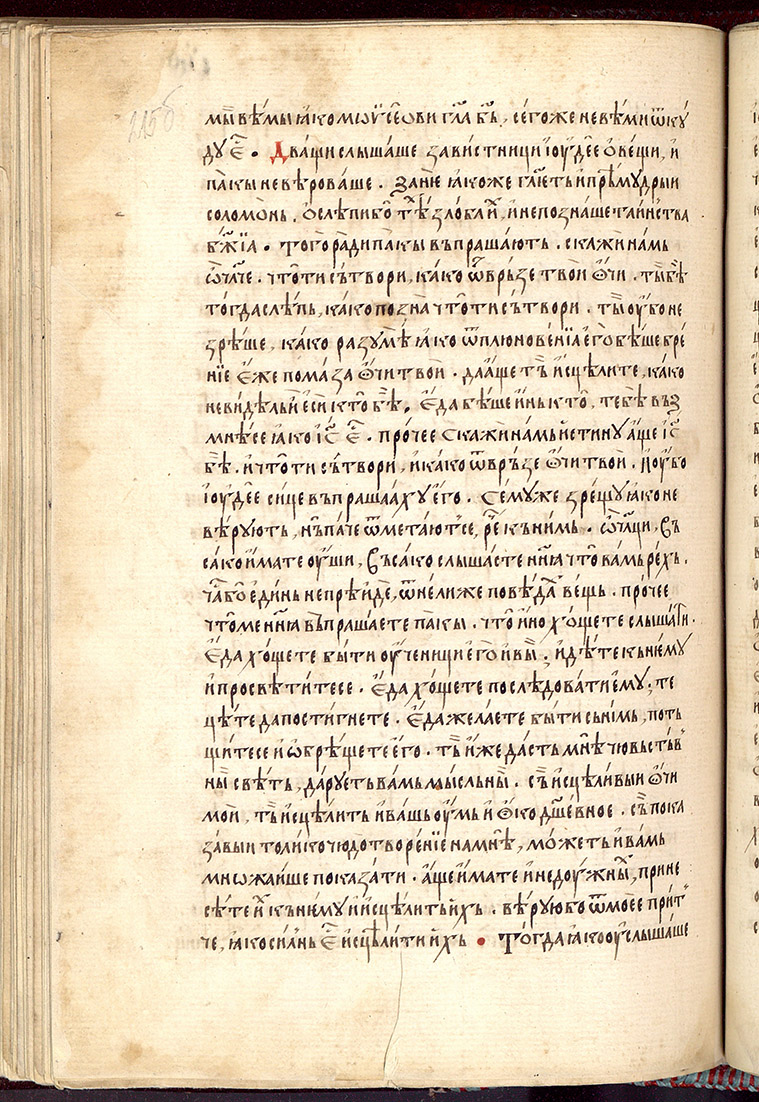 мы вѣмы ꙗко мѡѵсеѡви гл҃а бь҃. сего же не вѣми ѿкꙋ
дꙋ е҃. Дващи слышаше завистници іꙋдее ѡ вещи, и
пакы не вѣроваше. Заніе ꙗкоже гл҃еть и прѣмꙋдрыи
соломонь. ослѣпи бо тѣ злоба их, и не познаше таинства
бж҃їа. Того ради пакы въпрашають. скажи намь
ѿ ч҃лче. что ти сътвори, како ѿврьзе твои ѡчи. ты бѣ
тогда слѣпь, како позна что ти сътвори. ты ꙋбо не
зрѣше, како разꙋмѣ ꙗко ѿ плюновенїа его бѣше бре
нїе еже помаза ѡчи твои. да аще тъ исцѣли те, како
не видѣль еси кто бѣ. Еда бѣше инь кто, тебѣ въз
мнѣ се ꙗко іс҃ е҃. прочее скажи намь истинꙋ аще іс҃
бѣ. и что ти сътвори, и како ѿврьзе ѡчи твои. и ꙋбо
іꙋдее сице въпрашаахꙋ его. Семꙋже зрещꙋ ꙗко не
вѣрꙋють, нъ паче ѿметают се, рече кь нимь. въ
сако имате ꙋши, въсако слышасте нн҃ꙗ что вамь рехь.
час бо единь не прѣиде, ѿнелиже повѣдах вещь. прочее
что ме нн҃ꙗ въпрашаете пакы. что ино хощете слышати.
Еда хощете быти ꙋченици его и вы. идѣте кь немꙋ
и просвѣтите се. Еда хощете послѣдовати емꙋ, те
цѣте да постигнете. Еда желаете быти сь нимь, потъ
щите се и ѡбрѣщете его. тъ иже дасть мнѣ чювьствьв
ны свѣть, дарꙋеть вамь мысльны. сь исцѣливыи ѡчи
мои, тъ исцѣлить и вашь ꙋмь и ѡко дш҃евное. сь пока
завыи толико чюдотворенїе на мнѣ, можеть и вамь
множаише показати. аще имате и недꙋжных, прине
сѣте их кь немꙋ и исцѣлить ихь. вѣрꙋю бо ѿ моее прит
че, ꙗко силнь е҃ исцѣлити ихь. Тогда ꙗко ꙋслышаше